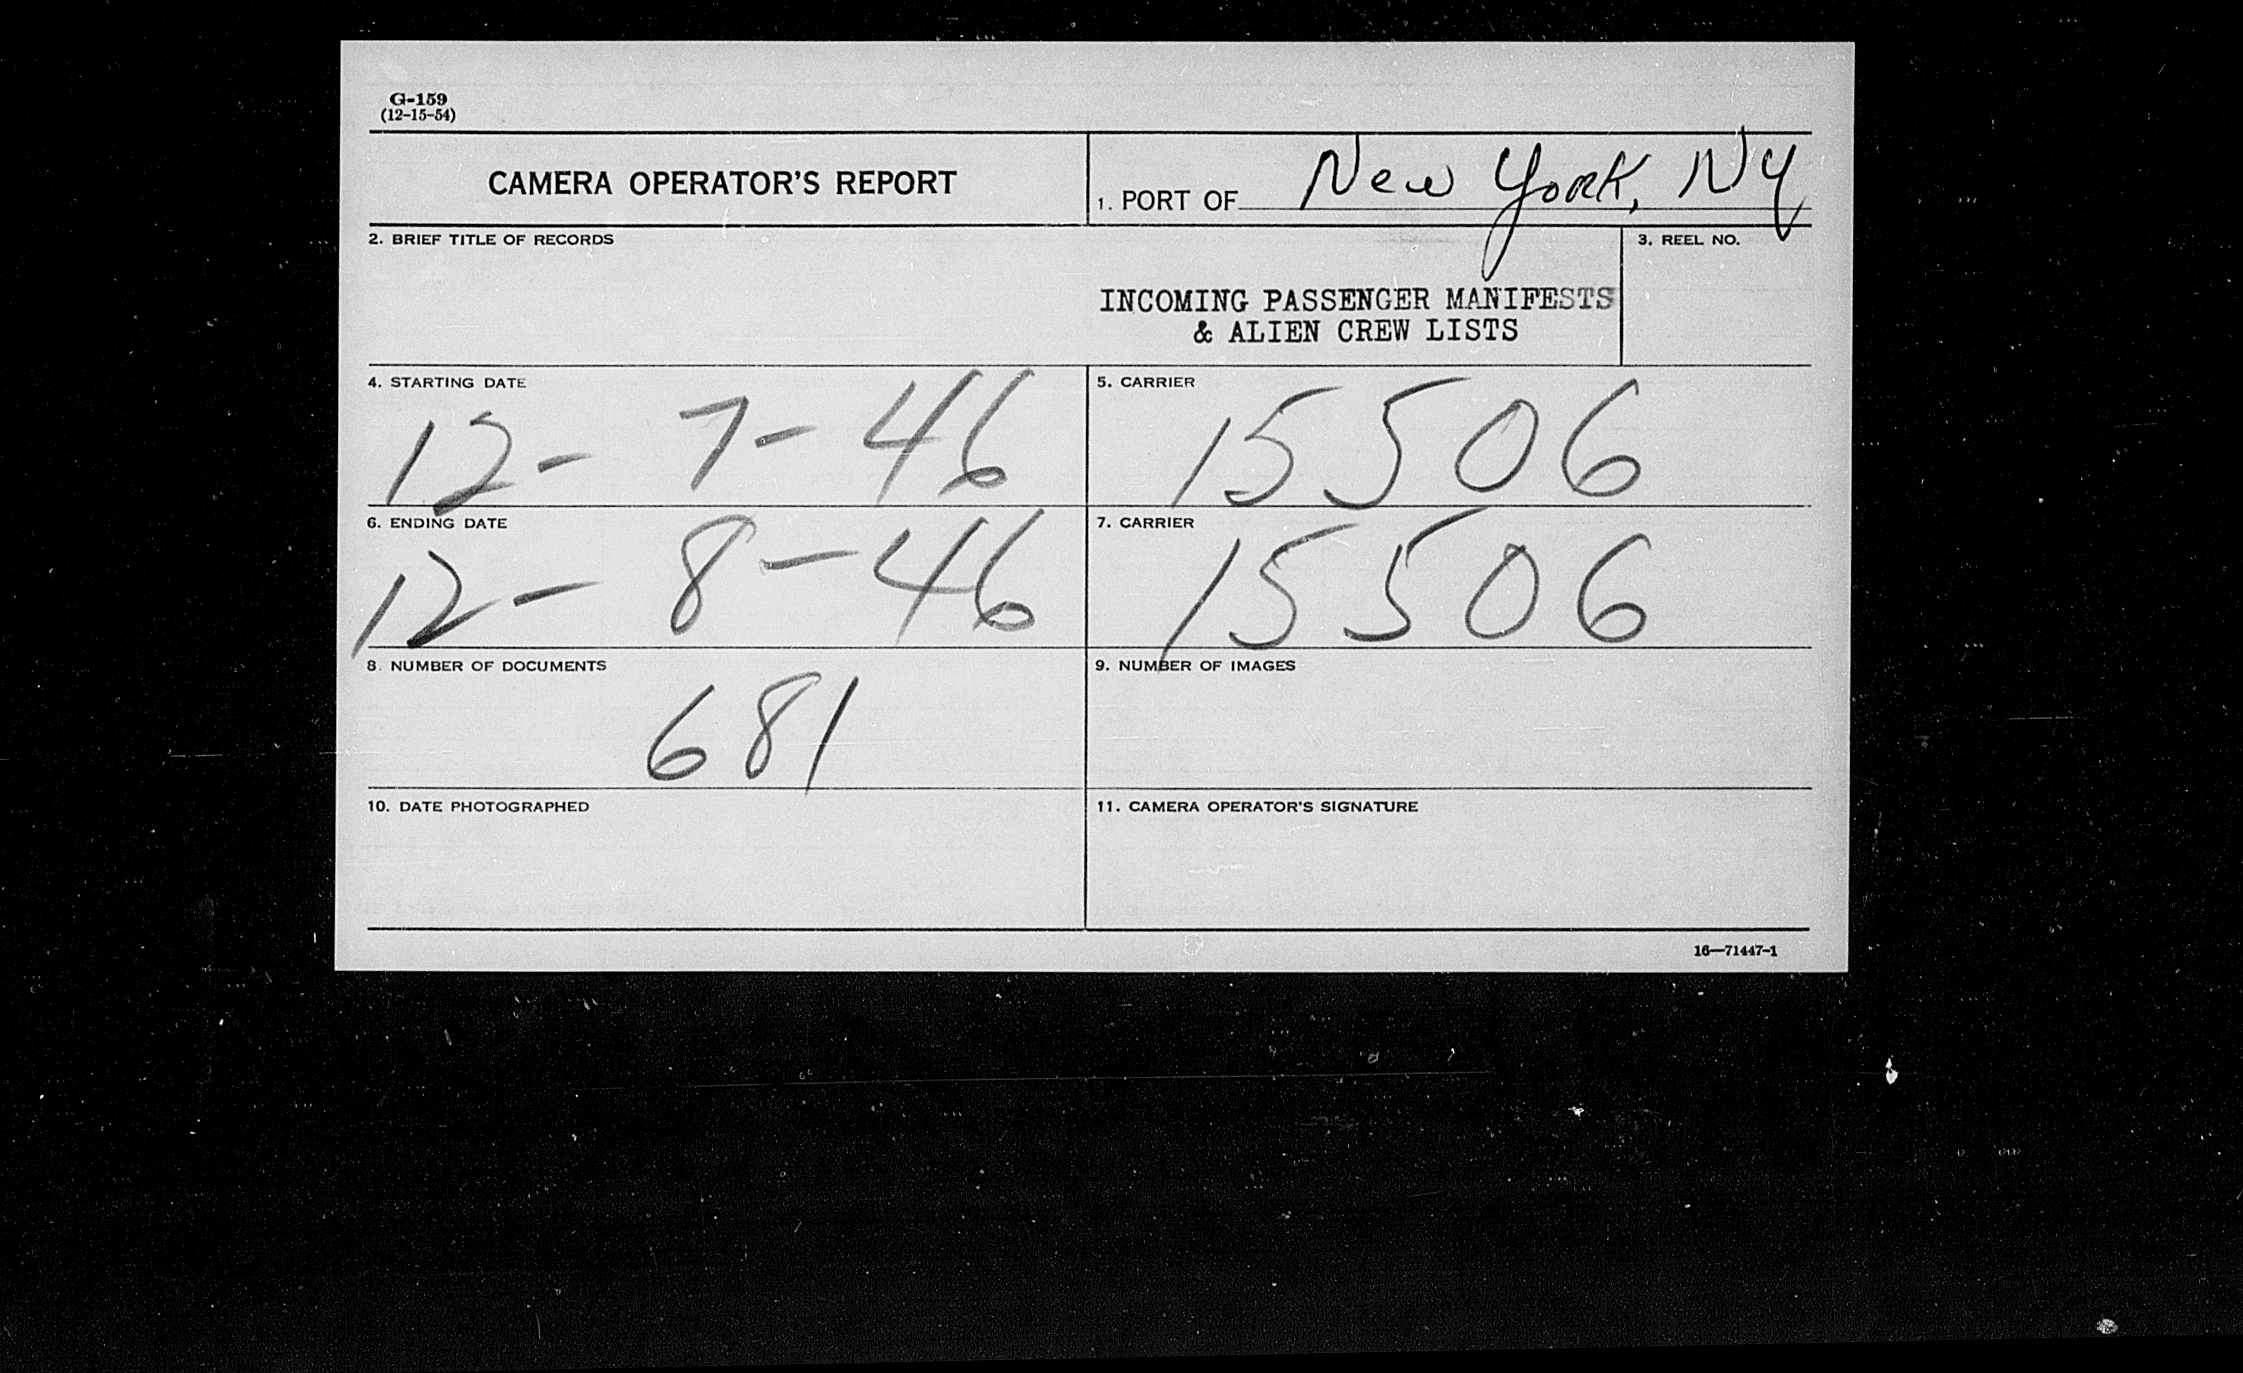 G-159
(12-15-54)
CAMERA OPERATOR'S REPORT
1. PORT OF New York, NY
2. BRIEF TITLE OF RECORDS
INCOMING PASSENGER MANIFESTS
& ALIEN CREW LISTS
3. REEL NO.
4. STARTING DATE
12-7-46
5. CARRIER
15506
6. ENDING DATE
12-8-46
7. CARRIER
15506
8. NUMBER OF DOCUMENTS
681
9. NUMBER OF IMAGES
10. DATE PHOTOGRAPHED
11. CAMERA OPERATOR'S SIGNATURE
16—71447-1